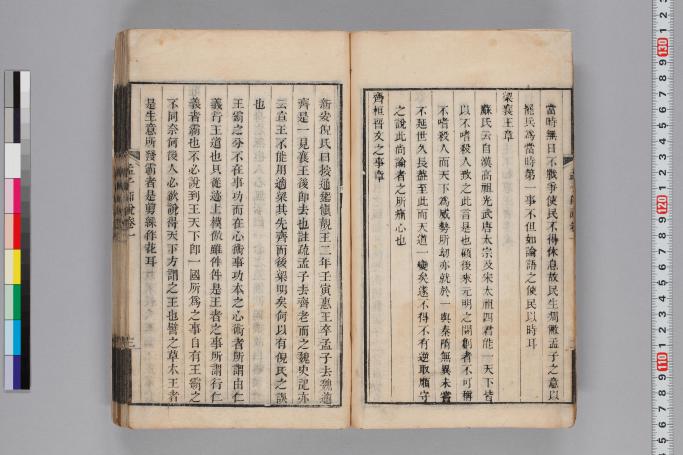 當時無日不戰爭使民不得休息故民生凋敝孟子之意以
罷兵為當時第一事不但如論語之使民以時耳
梁襄王章
蘇氏云自漢高祖光武唐太宗及宋太祖四君能一天下皆
以不嗜殺人致之此言是也顧後來元明之開創者不可稱
不嗜殺人而天下為威勢所刼亦就於一與秦隋無異未嘗
不延世久長蓋至此而天道一變矣遂不得不有逆取順守
之說此尚論者之所痛心也
齊桓晉文之事章
新安倪氏曰按通鑑愼靚王二年壬寅惠王卒孟子去魏適
齊是一見襄王後即去也註疏孟子去齊老而之魏史記亦
云宣王不能用適梁其先齊而後梁明矣何以有倪氏之誤
也
王霸之分不在事功而在心術事功本之心術者所謂由仁
義行王道也只從迹上模倣雖件件是王者之事所謂行仁
義者霸也不必說到王天下即一國所為之事自有王霸之
不同奈何後人必欲說得天下方謂之王也譬之草木王者
是生意所發霸者是剪綵作花耳
孟子師說卷一